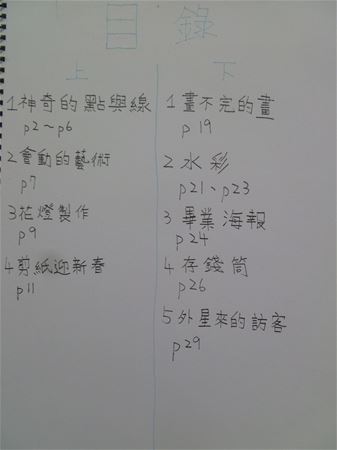 目錄
上
1神奇的點與線
p2~p6
2會動的藝術
p7
3花燈製作
p9
4剪紙迎新春
p11
下
1畫不完的畫
p19
2水彩
p21、p23
3畢業海報
p24
4存錢筒
p26
5外星來的訪客
p29